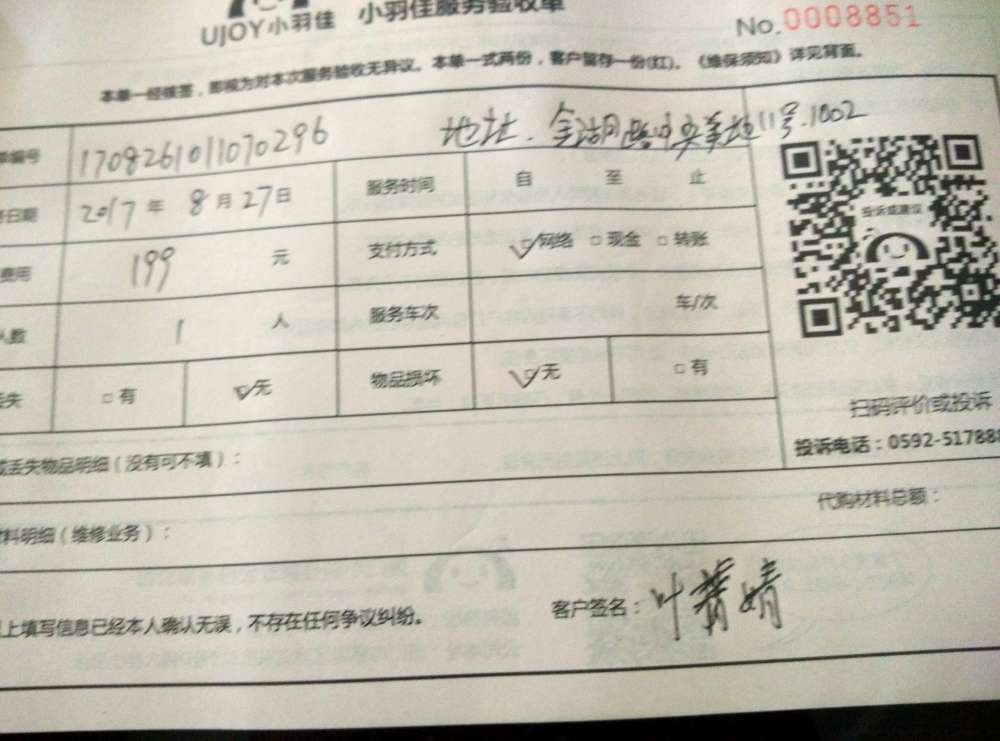 UJOY小羽佳 小羽佳服务验收单
No.0008851
本单一经核签，即视为对本次服务验收无异议。本单一式两份，客户留存一份(红)。《维保须知》详见背面。
单编号 1708261011070296 地址.金湖路中央美地11号.1002
务日期 2017年 8月27日 服务时间 自 至 止
费用 199 元 支付方式 ☑网络 □现金 □转账
人数 1 人 服务车次 车/次
丢失 □有 ☑无 物品损坏 ☑无 □有
投诉或建议
扫码评价或投诉
投诉电话：0592-517888
或丢失物品明细（没有可不填）：
材料明细（维修业务）： 代购材料总额：
上填写信息已经本人确认无误，不存在任何争议纠纷。 客户签名：叶 婧